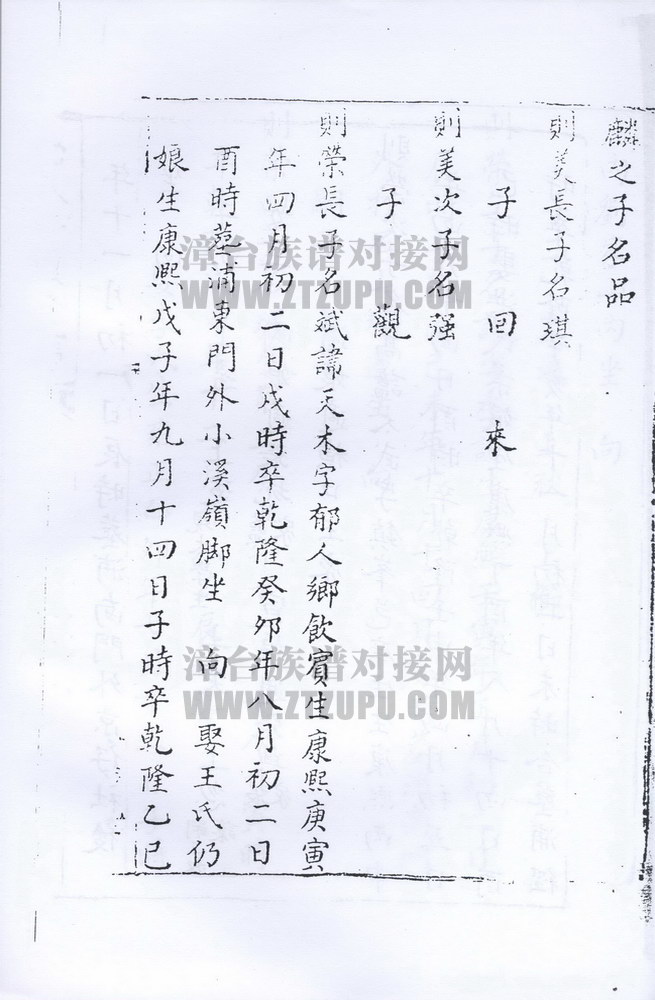 麟之子名品
則美長子名琪
子 回 來
則美次子名强
子 觀
則榮長子名斌諱天木字郁人鄉飲賓生康熙庚寅
年四月初二日戌時卒乾隆癸卯年八月初一日
酉時墓浦東門外小溪嶺脚坐 向 娶王氏仍
娘生康熙戊子年九月十四日子時卒乾隆乙巳
漳台族谱对接网
WWW.ZTZUPU.COM
漳台族谱对接网
WWW.ZTZUPU.COM